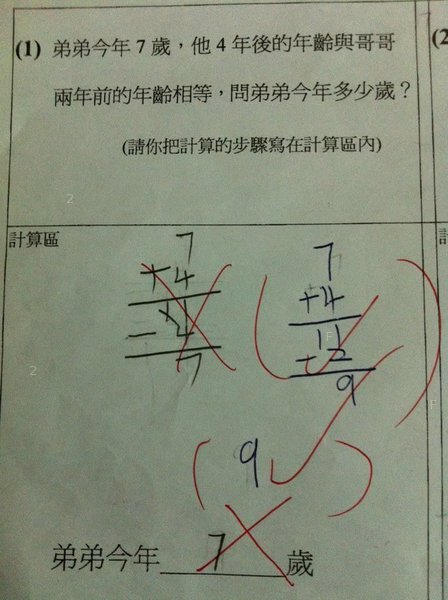 (1) 弟弟今年 7 歲，他 4 年後的年齡與哥哥
兩年前的年齡相等，問弟弟今年多少歲？
(請你把計算的步驟寫在計算區內)
(2
計算區
7
+4
11
-4
7
7
+4
11
-2
9
(9)
弟弟今年 7 歲